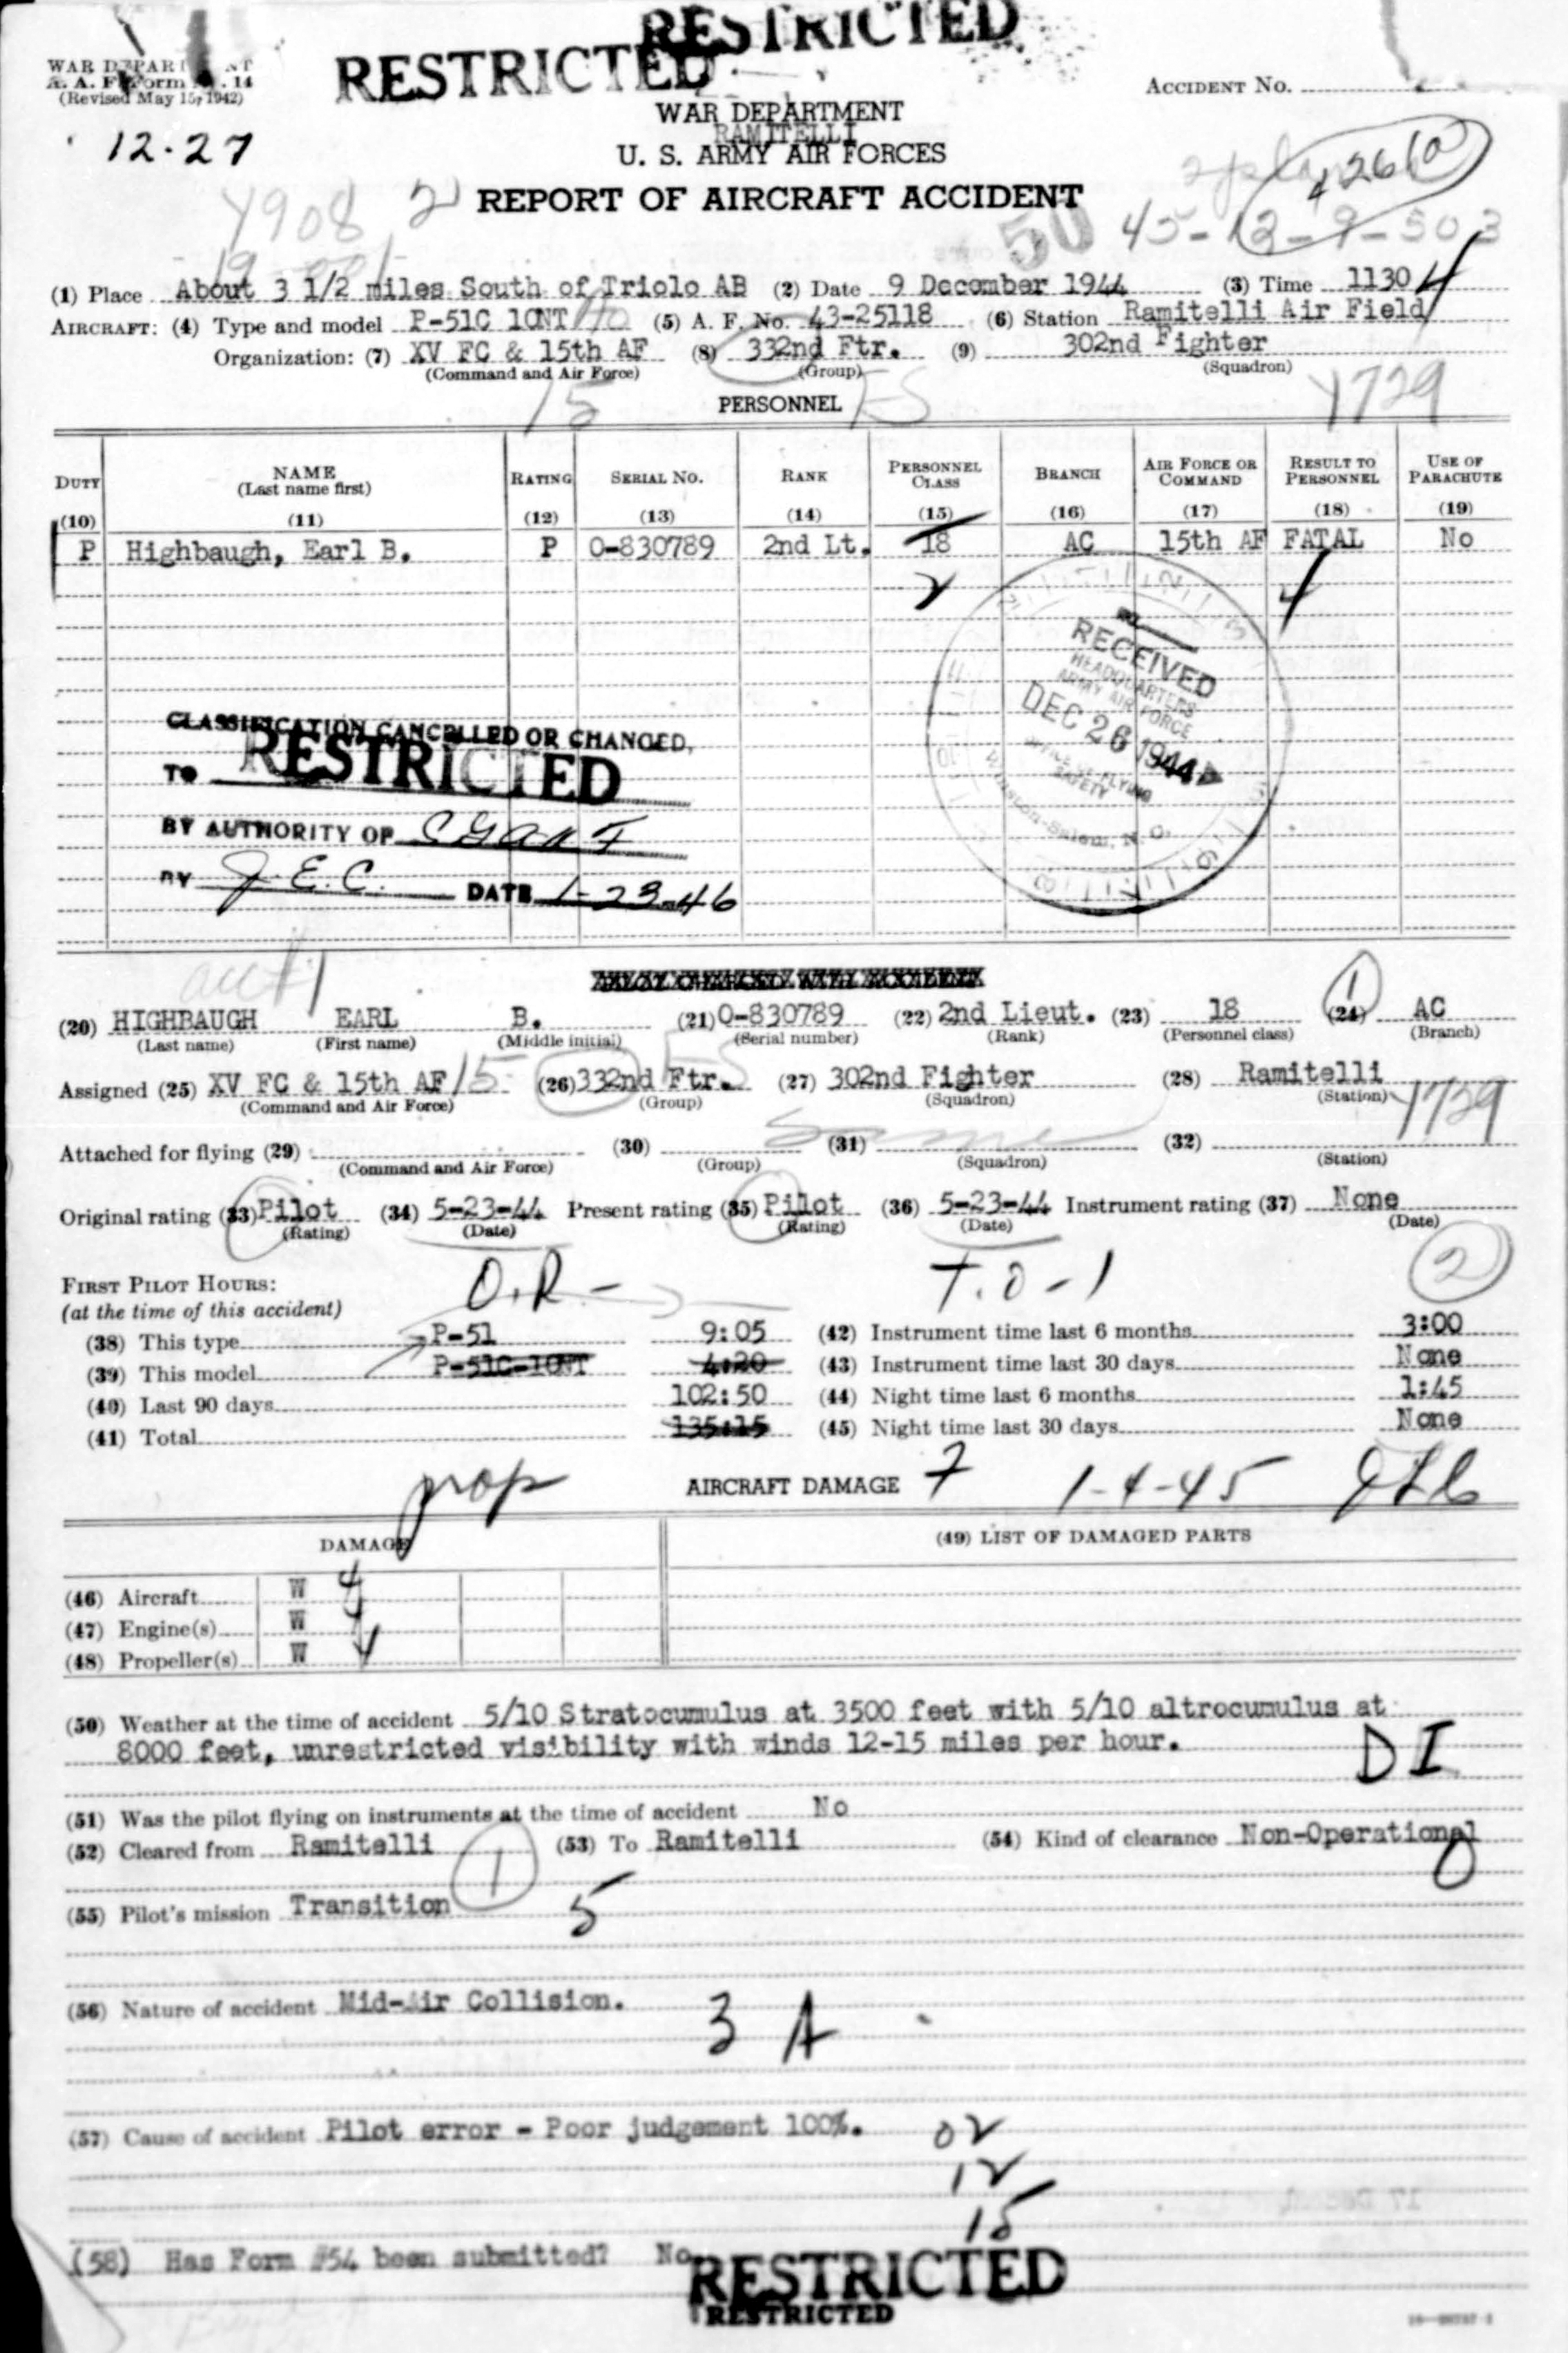 RESTRICTED
RESTRICTED
WAR DEPARTMENT
A. A. F. Form No. 14
(Revised May 15, 1942)
ACCIDENT No.
12-27
WAR DEPARTMENT
RAMITELLI
U. S. ARMY AIR FORCES
REPORT OF AIRCRAFT ACCIDENT
50 45-12-9-503
(1) Place About 3 1/2 miles South of Triolo AB (2) Date 9 December 1944 (3) Time 1130
AIRCRAFT: (4) Type and model P-51C 10NT (5) A. F. No. 43-25118 (6) Station Ramitelli Air Field
Organization: (7) XV FC & 15th AF (8) 332nd Ftr. (9) 302nd Fighter
(Command and Air Force) (Group) (Squadron)
15 FS Y729
PERSONNEL
DUTY NAME (Last name first) RATING SERIAL NO. RANK PERSONNEL CLASS BRANCH AIR FORCE OR COMMAND RESULT TO PERSONNEL USE OF PARACHUTE
(10) (11) (12) (13) (14) (15) (16) (17) (18) (19)
P Highbaugh, Earl B. P O-830789 2nd Lt. 18 AC 15th AF FATAL No
RECEIVED
HEADQUARTERS
ARMY AIR FORCE
DEC 26 1944
OFFICE OF FLYING
SAFETY
Winston-Salem, N. C.
CLASSIFICATION CANCELLED OR CHANGED,
TO RESTRICTED
BY AUTHORITY OF
BY J.E.C. DATE 1-23-46
(20) HIGHBAUGH EARL B. (21) O-830789 (22) 2nd Lieut. (23) 18 (24) AC
(Last name) (First name) (Middle initial) (Serial number) (Rank) (Personnel class) (Branch)
Assigned (25) XV FC & 15th AF 15 (26) 332nd Ftr. (27) 302nd Fighter (28) Ramitelli
(Command and Air Force) (Group) (Squadron) (Station) Y729
Attached for flying (29) (30) (31) Same (32)
(Command and Air Force) (Group) (Squadron) (Station)
Original rating (33) Pilot (34) 5-23-44 Present rating (35) Pilot (36) 5-23-44 Instrument rating (37) None
(Rating) (Date) (Rating) (Date) (Date)
O.R- T.O-1 2
FIRST PILOT HOURS:
(at the time of this accident)
(38) This type P-51 9:05 (42) Instrument time last 6 months 3:00
(39) This model P-51C-10NT 4:20 (43) Instrument time last 30 days None
(40) Last 90 days 102:50 (44) Night time last 6 months 1:45
(41) Total 135:15 (45) Night time last 30 days None
prop AIRCRAFT DAMAGE 7 1-4-45
DAMAGE (49) LIST OF DAMAGED PARTS
(46) Aircraft W 4
(47) Engine(s) W 4
(48) Propeller(s) W 4
(50) Weather at the time of accident 5/10 Stratocumulus at 3500 feet with 5/10 altrocumulus at
8000 feet, unrestricted visibility with winds 12-15 miles per hour.
D I
(51) Was the pilot flying on instruments at the time of accident No
(52) Cleared from Ramitelli (53) To Ramitelli (54) Kind of clearance Non-Operational
1
(55) Pilot's mission Transition 5
(56) Nature of accident Mid-Air Collision.
3 A
(57) Cause of accident Pilot error - Poor judgement 100%.
02
12
15
(58) Has Form #54 been submitted? No
RESTRICTED
RESTRICTED